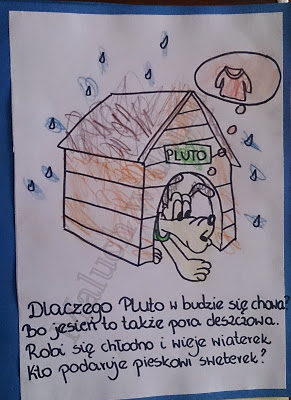 PLUTO
Dlaczego Pluto w budzie się chowa?
Bo jesień to także pora deszczowa.
Robi się chłodno i wieje wiaterek
Kto podaruje pieskowi sweterek?